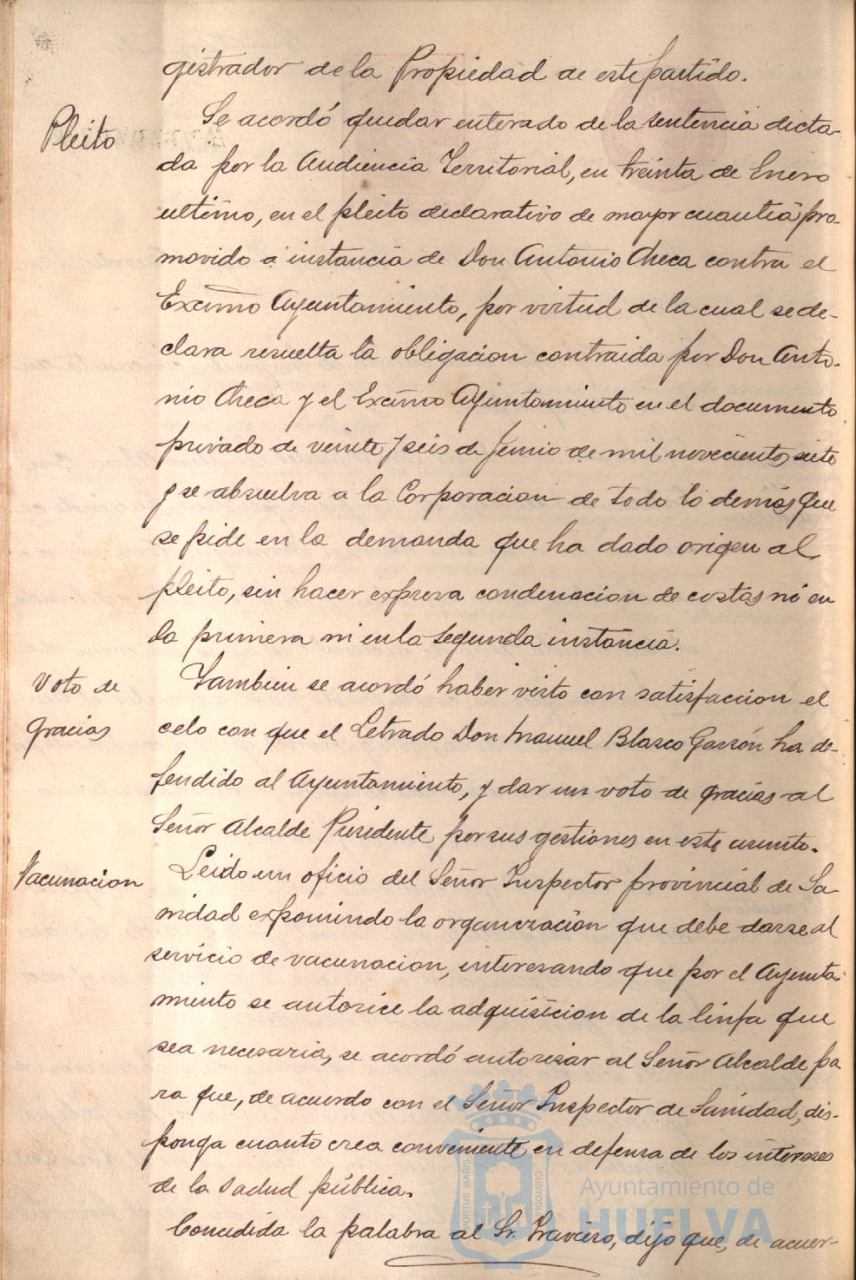 gistrador de la Propiedad de este partido.
Pleito
Se acordó quedar enterado de la sentencia dicta-
da por la Audiencia Territorial, en treinta de Enero
ultimo, en el pleito declarativo de mayor cuantia pro-
movido a instancia de Don Antonio Checa contra el
Excmo Ayuntamiento, por virtud de la cual se de-
clara resuelta la obligacion contraida por Don Anto-
nio Checa y el Excmo Ayuntamiento en el documento
privado de veinte y seis de Junio de mil novecientos siete
y se absuelva a la Corporacion de todo lo demás que
se pide en la demanda que ha dado origen al
pleito, sin hacer expresa condenacion de costas ni en
la primera ni en la segunda instancia.
Voto de
gracias
Tambien se acordó haber visto con satisfaccion el
celo con que el Letrado Don Manuel Blasco Garzón ha de-
fendido al Ayuntamiento, y dar un voto de gracias al
Señor Alcalde Presidente por sus gestiones en este asunto.
Vacunacion
Leido un oficio del Señor Inspector provincial de Sa-
nidad exponiendo la organizacion que debe darse al
servicio de vacunacion, interesando que por el Ayunta-
miento se autorice la adquisicion de la linfa que
sea necesaria, se acordó autorizar al Señor Alcalde pa
ra que, de acuerdo con el Señor Inspector de Sanidad, dis-
ponga cuanto crea conveniente en defensa de los intereses
de la salud pública.
Concedida la palabra al Sr. Traviero, dijo que, de acuer-
PORTUS MARIS
CUSTODIA
Ayuntamiento de
HUELVA